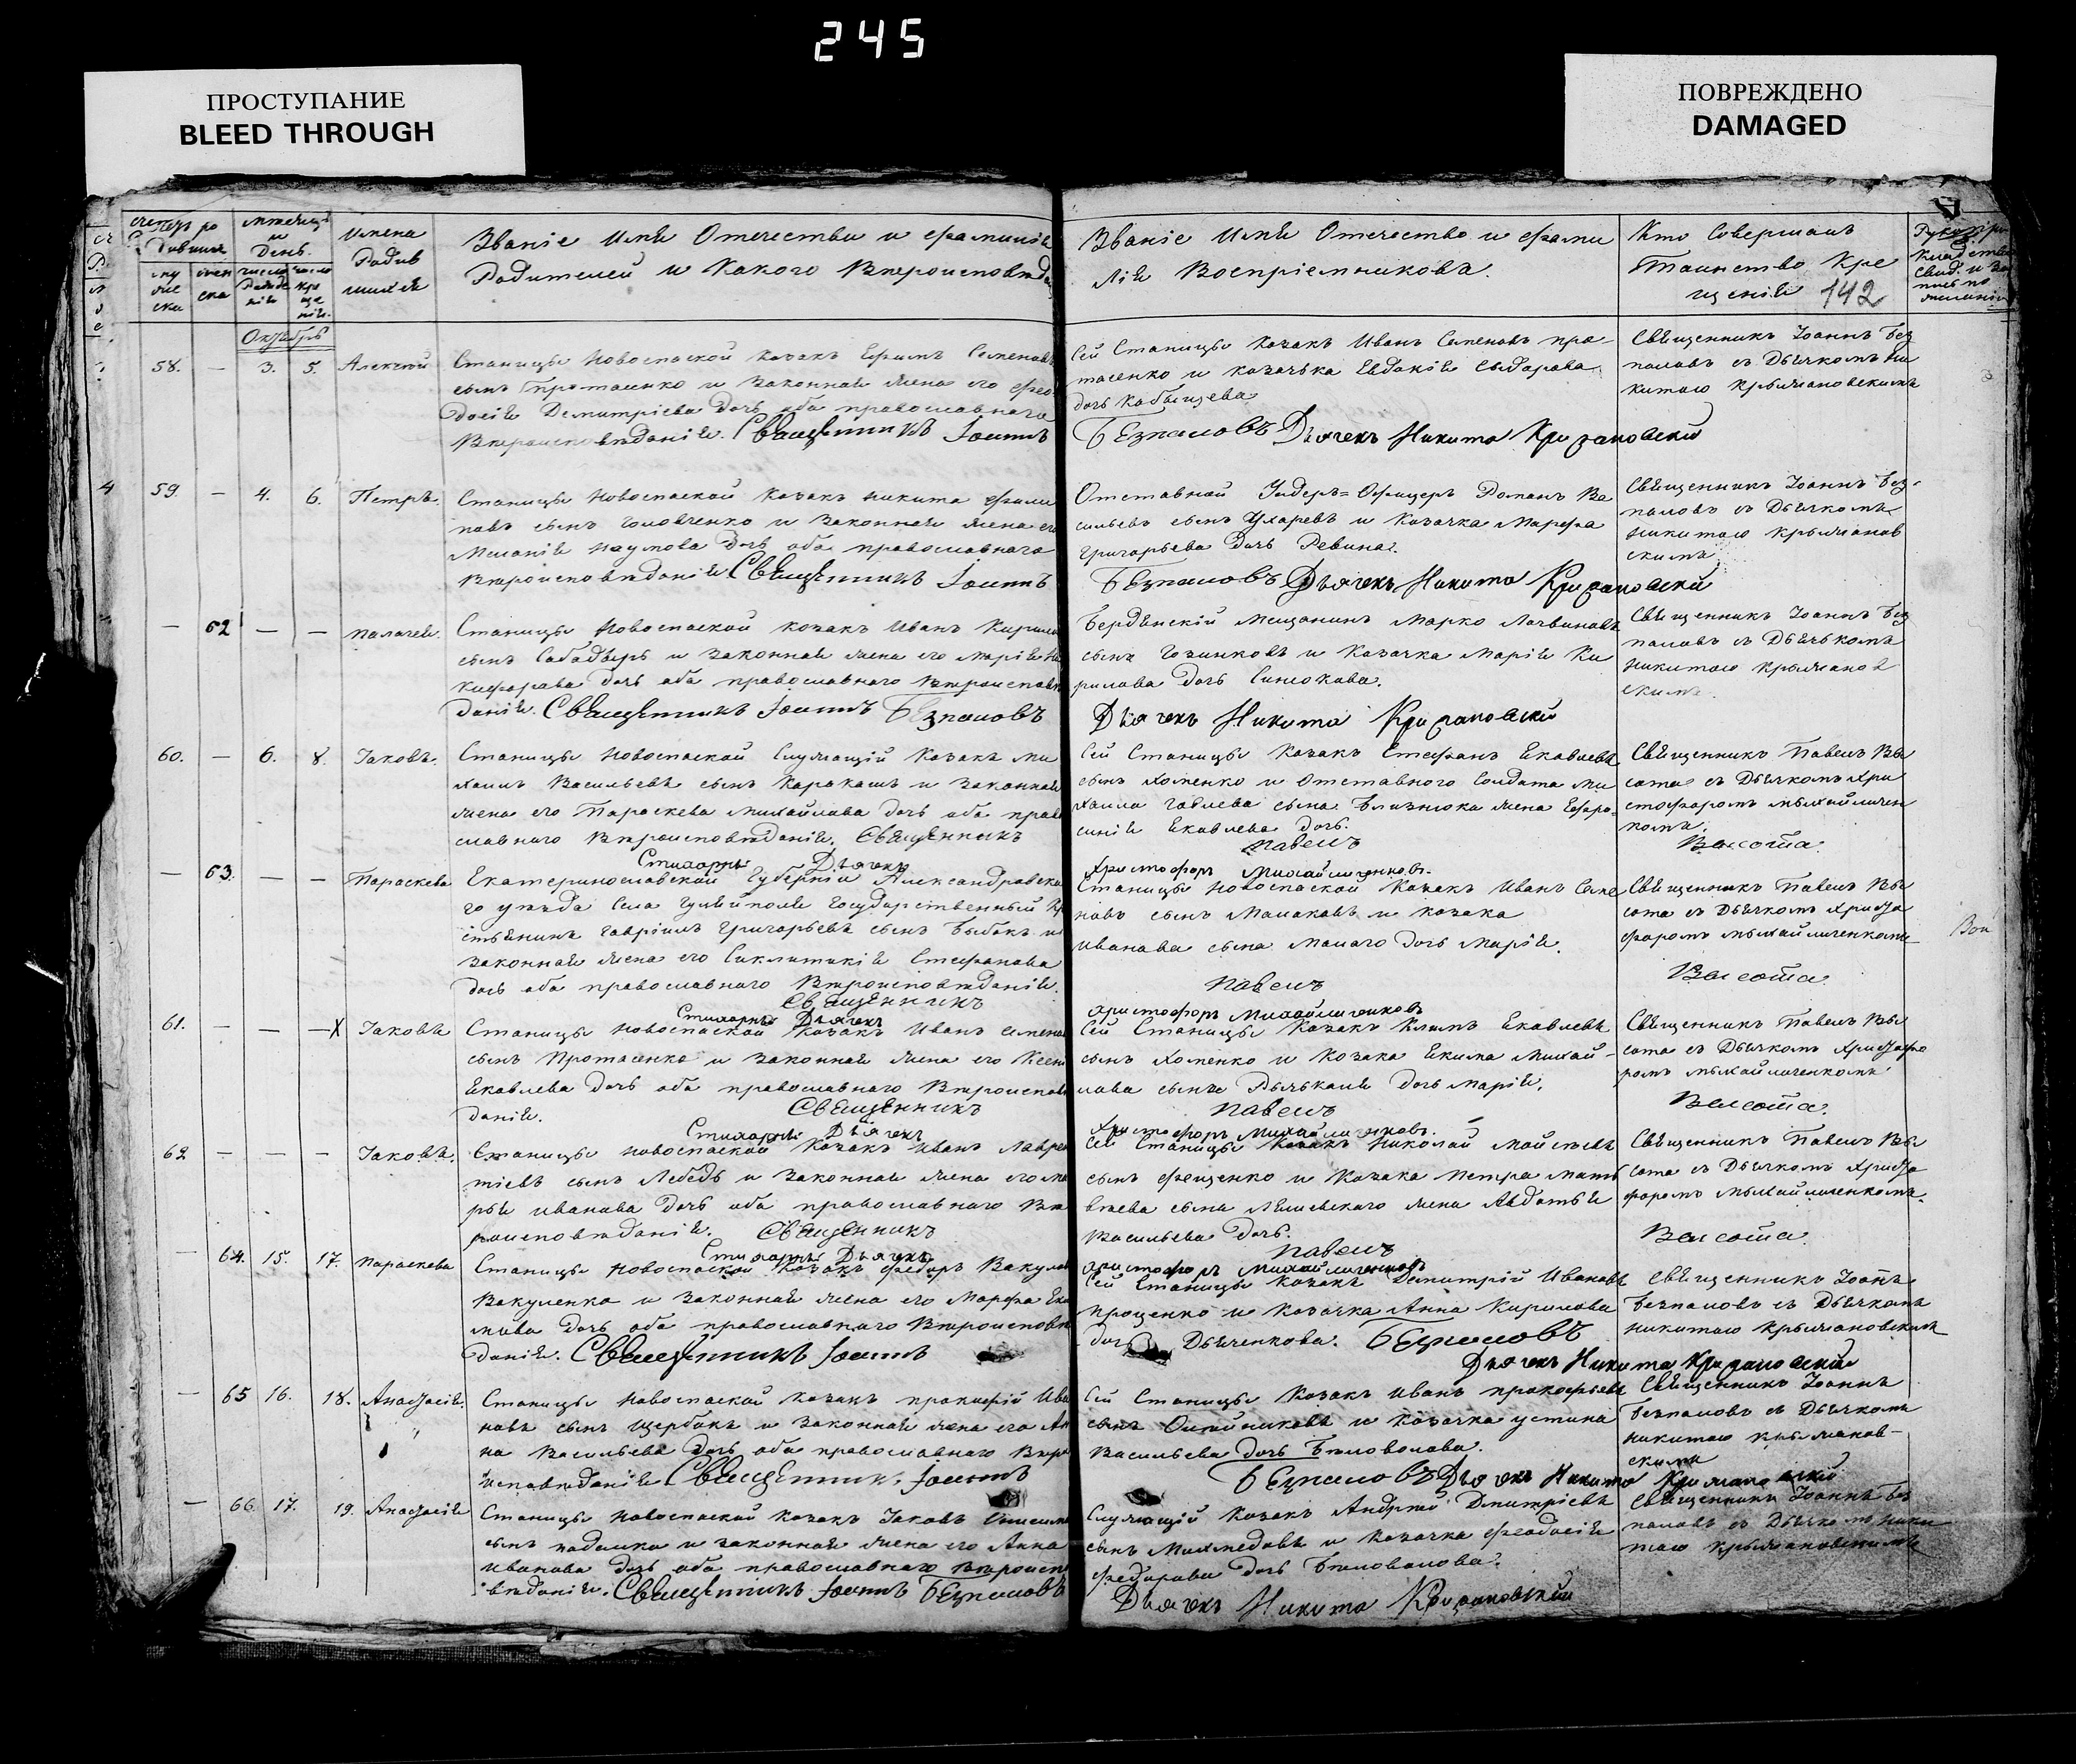 245
ПРОСТУПАНИЕ
BLEED THROUGH
ПОВРЕЖДЕНО
DAMAGED
Имена
Родив
шихся
Званіе Имя Отечество и фамилія
Родителей и Какого Вѣроисповѣда
Званіе Имя Отечество и фами
лія Воспріемниковъ.
Кто Совершалъ
Таинство Кре
щенія 142
Октябрь
58. — 3. 5. Алексѣй
Станицы Новоспаской казакъ Ефимъ Семеновъ
сынъ Протасенко и законная жена его Фео
досія Демитріева дочь оба православнаго
Вѣроисповѣданія. Священникъ Іоаннъ
Сей Станицы казакъ Иванъ Семеновъ про
тасенко и казачька Евдокія Сидорова
дочь Кобызева
Безпаловъ Дьячекъ Никита Крижановскій
Священникъ Іоаннъ Без
паловъ съ Дьячкомъ Ни
китою Крыжановскимъ
4 59. — 4. 6. Петръ.
Станицы Новоспаской Казакъ Никита Фили
повъ сынъ Головченко и законная жена его
Меланія Наумова дочь оба православнаго
Вѣроисповѣданія Священникъ Іоаннъ
Отставной Ундеръ=Офицеръ Романъ Ва
сильевъ сынъ Ухаревъ и Казачка Марфа
Григорьева дочь Ревина.
Безпаловъ Дьячекъ Никита Крижановскій
Священникъ Іоаннъ Без-
паловъ съ Дьячкомъ
Никитою Крыжанов
скимъ
— 62 — — Палагея.
Станицы Новоспаской козакъ Иванъ Кирилл
сынъ Сабадырь и законная жена его Марія Ни
кифорова дочь оба православнаго Вѣроисповѣ
данія. Священникъ Іоаннъ Безпаловъ
Бердянскій Мещанинъ Марко Логвиновъ
сынъ и Казачка Марія Ки
рилова дочь Синюкова.
Дьячекъ Никита Крижановскій
Священникъ Іоаннъ Без
паловъ съ Дьячькомъ
Никитою Крыжанов
скимъ.
60. — 6. 8. Іаковъ.
Станицы Новоспаской Служащій Казакъ Ми
хаилъ Васильевъ сынъ Каракашъ и законная
жена его Параскева Михайлова дочь оба право
славнаго Вѣроисповѣданія. Священникъ
Стихарный Дьячекъ
Сей Станицы Казакъ Стефанъ Екавлевъ
сынъ Хоменко и Отставного Солдата Ми
хаила сына Близнюка жена Ефро
синія Екавлева дочь.
Павелъ
Христофоръ Михайличенковъ.
Священникъ Павелъ Вы
сота съ Дьячкомъ Хри
стофоромъ Михайличен
комъ.
Высота.
— 63. — — Параскева
Екатеринославской Губерніи Александровска
го уѣзда Села Гуляйполя Государственный Кр
стьянинъ Гавріилъ Григорьевъ сынъ Быбакъ и
законная жена его Сиклитикія Стефанова
дочь оба православнаго Вѣроисповѣданія.
Священникъ
Стихарный Дьячекъ
Станицы Новоспаской Казакъ Иванъ Семе
новъ сынъ Малаковъ и козака
Иванова сына Малаго дочь Марія.
Павелъ
Христофоръ Михайличенковъ
Священникъ Павелъ Вы
сота съ Дьячкомъ Христо
форомъ Михайличенкомъ
Высота
61. — — — X Іаковъ
Станицы Новоспаской Казакъ Иванъ Семено
сынъ Протасенко и законная жена его Ксені
Екавлева дочь оба православнаго Вѣроисповѣ
данія. Священникъ
Стихарный Дьячекъ
Сей Станицы Казакъ Климъ Екавлевъ
сынъ Хоменко и Козака Екима Михай-
лова сына дочь Марія.
Павелъ
Христофоръ Михайличенковъ.
Священникъ Павелъ Вы
сота съ Дьячкомъ Христофо
ромъ Михайличенкомъ
Высота.
62 — — — Іаковъ.
Станицы Новоспаской Казакъ Иванъ Лаврен
тіевъ сынъ Лебедь и законная жена его Ма
рья Иванова дочь оба православнаго Вѣ
роисповѣданія. Священникъ
Стихарный Дьячекъ
Сей Станицы Казакъ Николай Мойсѣевъ
сынъ Фещенко и Козака Петра Матв
вѣева сына жена Авдотья
Васильева дочь.
Павелъ
Христофоръ Михайличенковъ
Священникъ Павелъ Вы
сота съ Дьячкомъ Христо
форомъ Михайличенкомъ.
Высота.
— 64. 15. 17. Параскева
Станицы Новоспаской Казакъ Федоръ Вакулов
Вакуленко и законная жена его Марфа Еки
мова дочь оба православнаго Вѣроисповѣ
данія. Священникъ Іоаннъ
Сей Станицы Казакъ Демитрій Ивановъ
Проценко и Казачка Анна Кирилова
дочь Дьяченкова. Безпаловъ
Дьячекъ Никита Крижановскій
Священникъ Іоаннъ
Безпаловъ съ Дьячкомъ
Никитою Крыжановскимъ
— 65 16. 18. Анастасія.
Станицы Новоспаской Казакъ Прокофій Ива
новъ сынъ Щербакъ и законная жена его Ан
на Васильева дочь оба православнаго Вѣро
исповѣданія Священник. Іоаннъ
Сей Станицы Казакъ Иванъ Прокофьевъ
сынъ Олейниковъ и Казачка Устина
Васильева дочь Бѣловолова.
Безпаловъ Дьячекъ Никита Крижановскій
Священникъ Іоаннъ
Безпаловъ съ Дьячкомъ
Никитою Крыжанов-
скимъ
— 66. 17. 19. Анастасія
Станицы Новоспаской Казакъ Іаковъ
сынъ Падалка и законная жена его Анна
Иванова дочь оба православнаго Вѣроиспо
вѣданія. Священникъ Іоаннъ Безпаловъ
Служащій Казакъ Андрей Дмитріевъ
сынъ и Казачка Феодосія
Федорова дочь Бѣловолова.
Дьячекъ Никита Крижановскій
Священникъ Іоаннъ Без
паловъ съ Дьячкомъ Ники
тою Крыжановскимъ